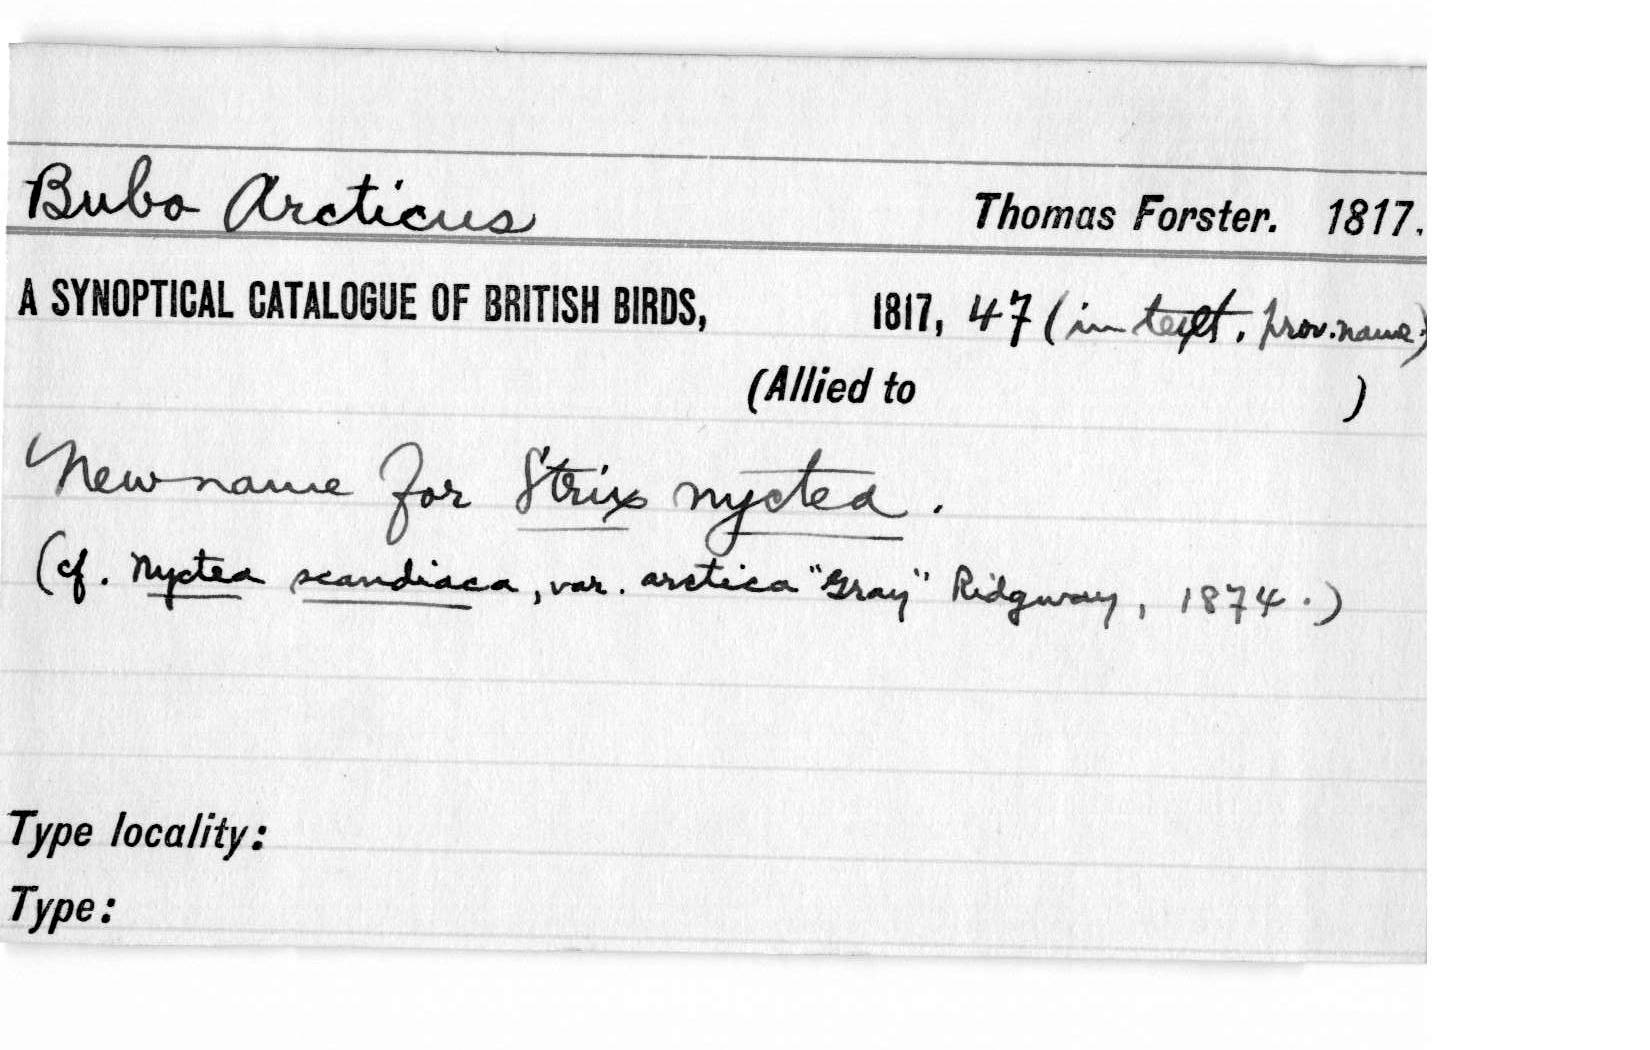 Bubo Arcticus Thomas Forster. 1817.
A SYNOPTICAL CATALOGUE OF BRITISH BIRDS, 1817, 47 (in text, prov. name.)
(Allied to )
New name for Strix nyctea.
(cf. Nyctea scandiaca, var. arctica "Gray" Ridgway, 1874.)
Type locality:
Type: